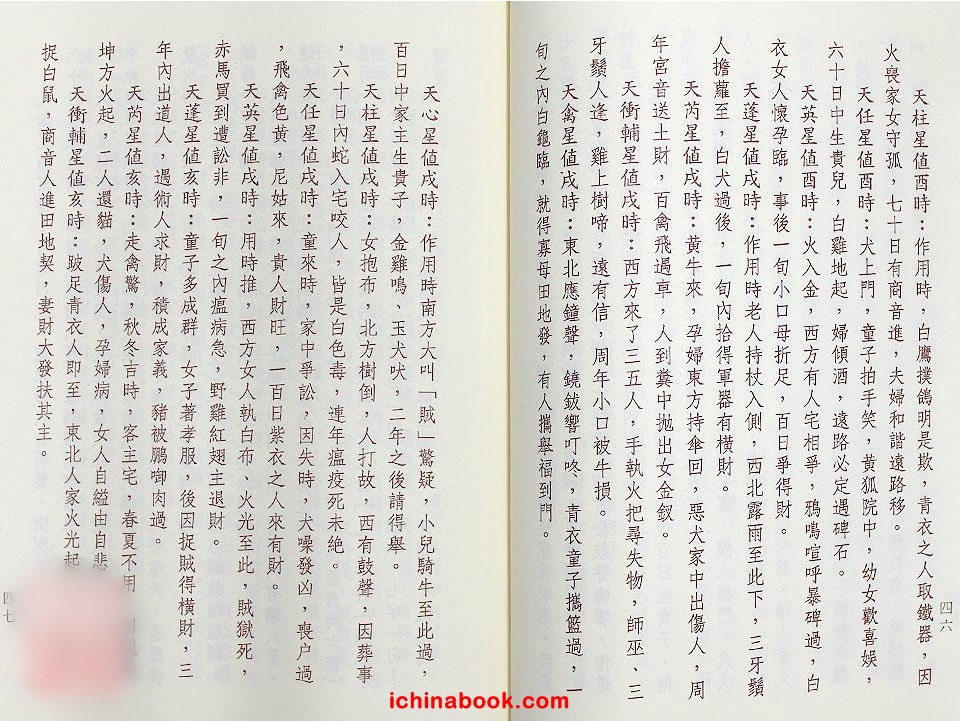 天柱星值酉時：作用時，白鷹撲鴿明是欺，青衣之人取鐵器，因
火喪家女守孤，七十日有商音進，夫婦和諧遠路移。
天任星值酉時：犬上門，童子拍手笑，黃狐院中，幼女歡喜娛，
六十日中生貴兒，白雞地起，婦傾酒，遠路必定遇碑石。
天英星值酉時：火入金，西方有人宅相爭，鴉鳴喧呼暴碑過，白
衣女人懷孕臨，事後一旬小口母折足，百日爭得財。
天蓬星值戌時：作用時老人持杖入側，西北露雨至此下，三牙鬚
人擔蘿至，白犬過後，一旬內拾得軍器有橫財。
天芮星值戌時：黃牛來，孕婦東方持傘回，惡犬家中出傷人，周
年宮音送土財，百禽飛過皐，人到糞中拋出女金釵。
天衝輔星值戌時：西方來了三五人，手執火把尋失物，師巫、三
牙鬚人逢，雞上樹啼，遠有信，周年小口被牛損。
天禽星值戌時：東北應鐘聲，鐃鈸響叮咚，青衣童子攜籃過，一
旬之內白龜臨，就得寡母田地發，有人攜舉福到門。
四六
天心星值戌時：作用時南方大叫「賊」驚疑，小兒騎牛至此過，
百日中家主生貴子，金雞鳴、玉犬吠，二年之後請得舉。
天柱星值戌時：女抱布，北方樹倒，人打故，西有鼓聲，因葬事
，六十日內蛇入宅咬人，皆是白色毒，連年瘟疫死未絕。
天任星值戌時：童來時，家中爭訟，因失時，犬噪發凶，喪户過
，飛禽色黃，尼姑來，貴人財旺，一百日紫衣之人來有財。
天英星值戌時：用時推，西方女人執白布、火光至此，賊獄死，
赤馬買到遭訟非，一旬之內瘟病急，野雞紅翅主退財。
天蓬星值亥時：童子多成群，女子著孝服，後因捉賊得橫財，三
年內出道人，遇術人求財，積成家義，豬被鵬啣肉過。
天芮星值亥時：走禽驚，秋冬吉時，客主宅，春夏不用
坤方火起，二人還貓，犬傷人，孕婦病，女人自縊由自悲
天衝輔星值亥時：跛足青衣人即至，東北人家火光起
捉白鼠，商音人進田地契，妻財大發扶其主。
四七
ichinabook.com